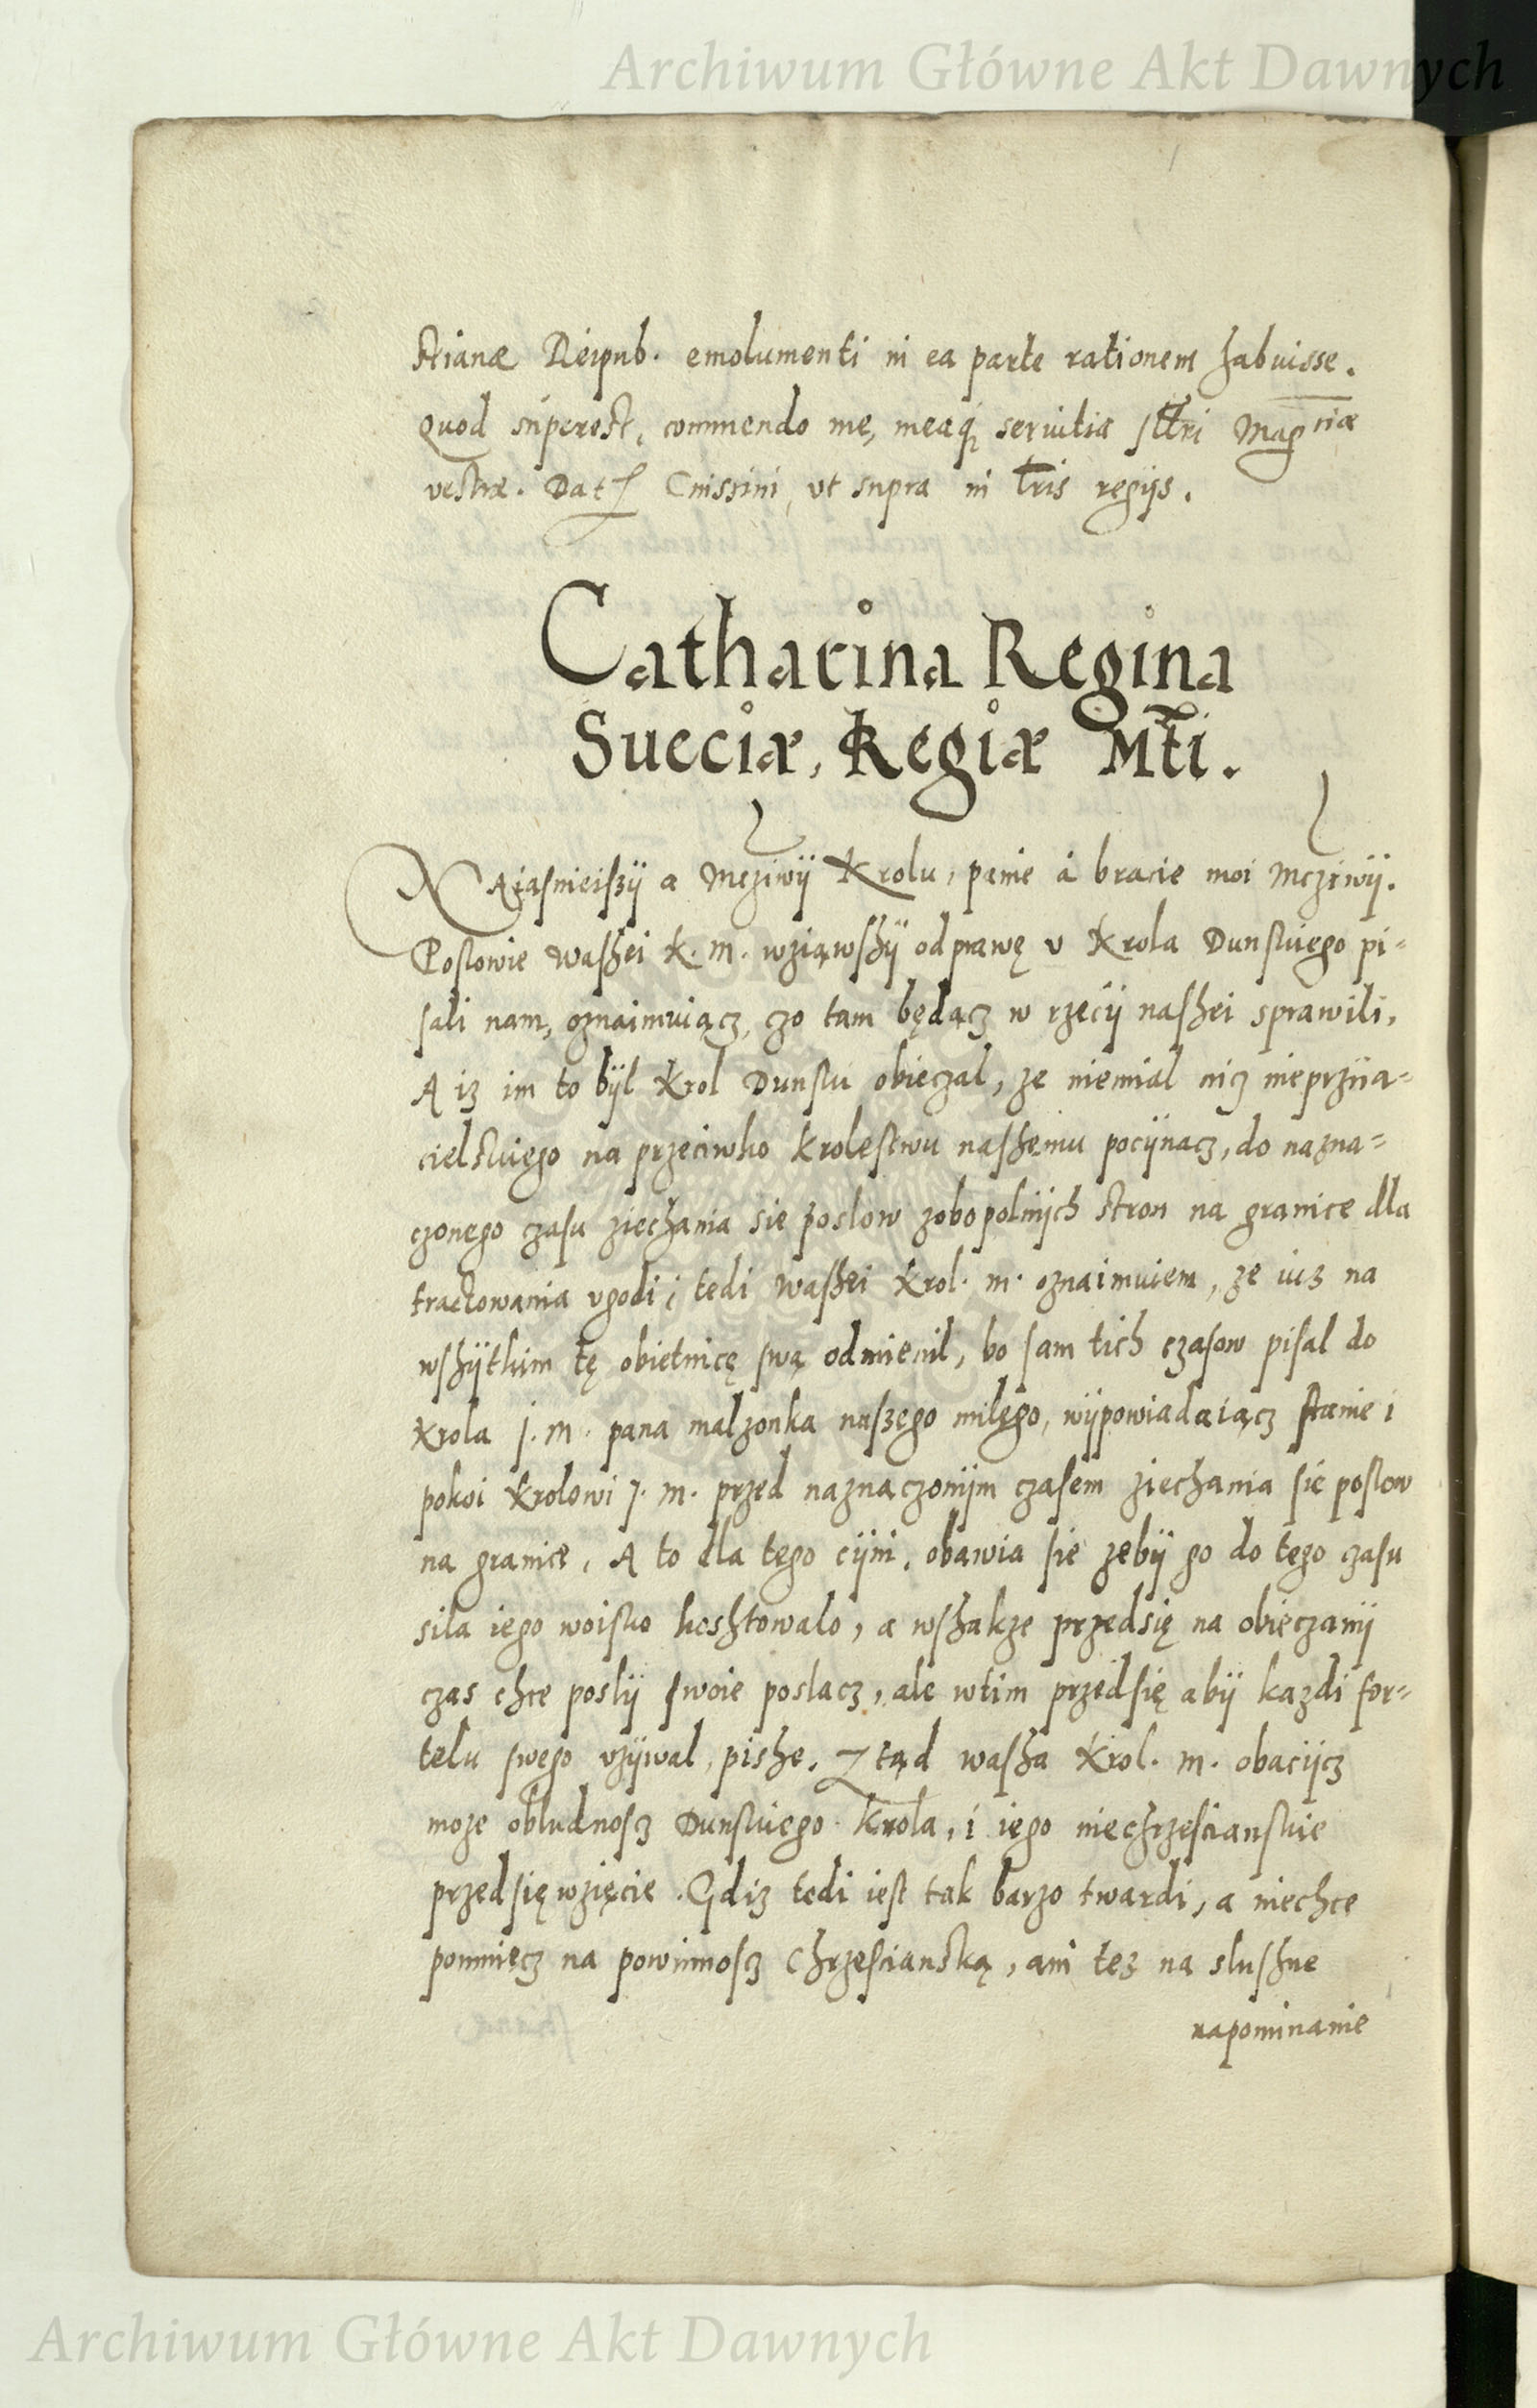 Archiwum Główne Akt Dawnych
stianæ Reipub. emolumenti in ea parte rationem habuisse.
Quod superest, commendo me, meaq; servitia Illri Magciæ
vestræ. Dat. Cnissini, vt supra in lris regijs.
Catharina Regina
Sueciæ, Regiæ Mti.
NAiasnieiszÿ a Mcziwÿ Krolu, panie á bracie moi Mcziwÿ.
Poslowie washei K. M. wziąwshÿ odprawę v Krola Dunskiego pi-
sali nam, oznaimuiącz, czo tam będącz w rzecÿ nashei sprawili,
A iz im to bÿl Krol Dunski obieczal, ze niemial nicz nieprzÿia-
cielskiego na przeciwko Krolestwu nashemu pocÿnacz, do nazna-
czonego czasu ziechania sie poslow zobopolnÿch stron na granice dla
tractowania vgodi; tedi washei Krol. m. oznaimuiem, ze iuz na
wshÿtkim tę obietnicę swą odmienil, bo sam tich czasow pisal do
Krola J. M. pana malzonka naszego milego, wÿpowiadaiącz stanie i
pokoi Krolowi J. M. przed naznaczonÿm czasem ziechania sie poslow
na granice, A to dla tego cÿni, obawia sie zebÿ go do tego czasu
sila iego woisko koshtowalo, a wshakze przedsię na obieczanÿ
czas chce poslÿ swoie poslacz, ale wtim przedsię abÿ kazdi for-
telu swego vzÿwal, pishe. Ztąd washa Krol. m. obacÿcz
moze obludnoscz Dunskiego Krola, i iego niechrzescianskie
przedsięwzięcie. Gdiz tedi iest tak barzo twardi, a niechce
pomniecz na powinnoscz Chrzescianską, ani tez na slushne
napominanie
Archiwum Główne Akt Dawnych